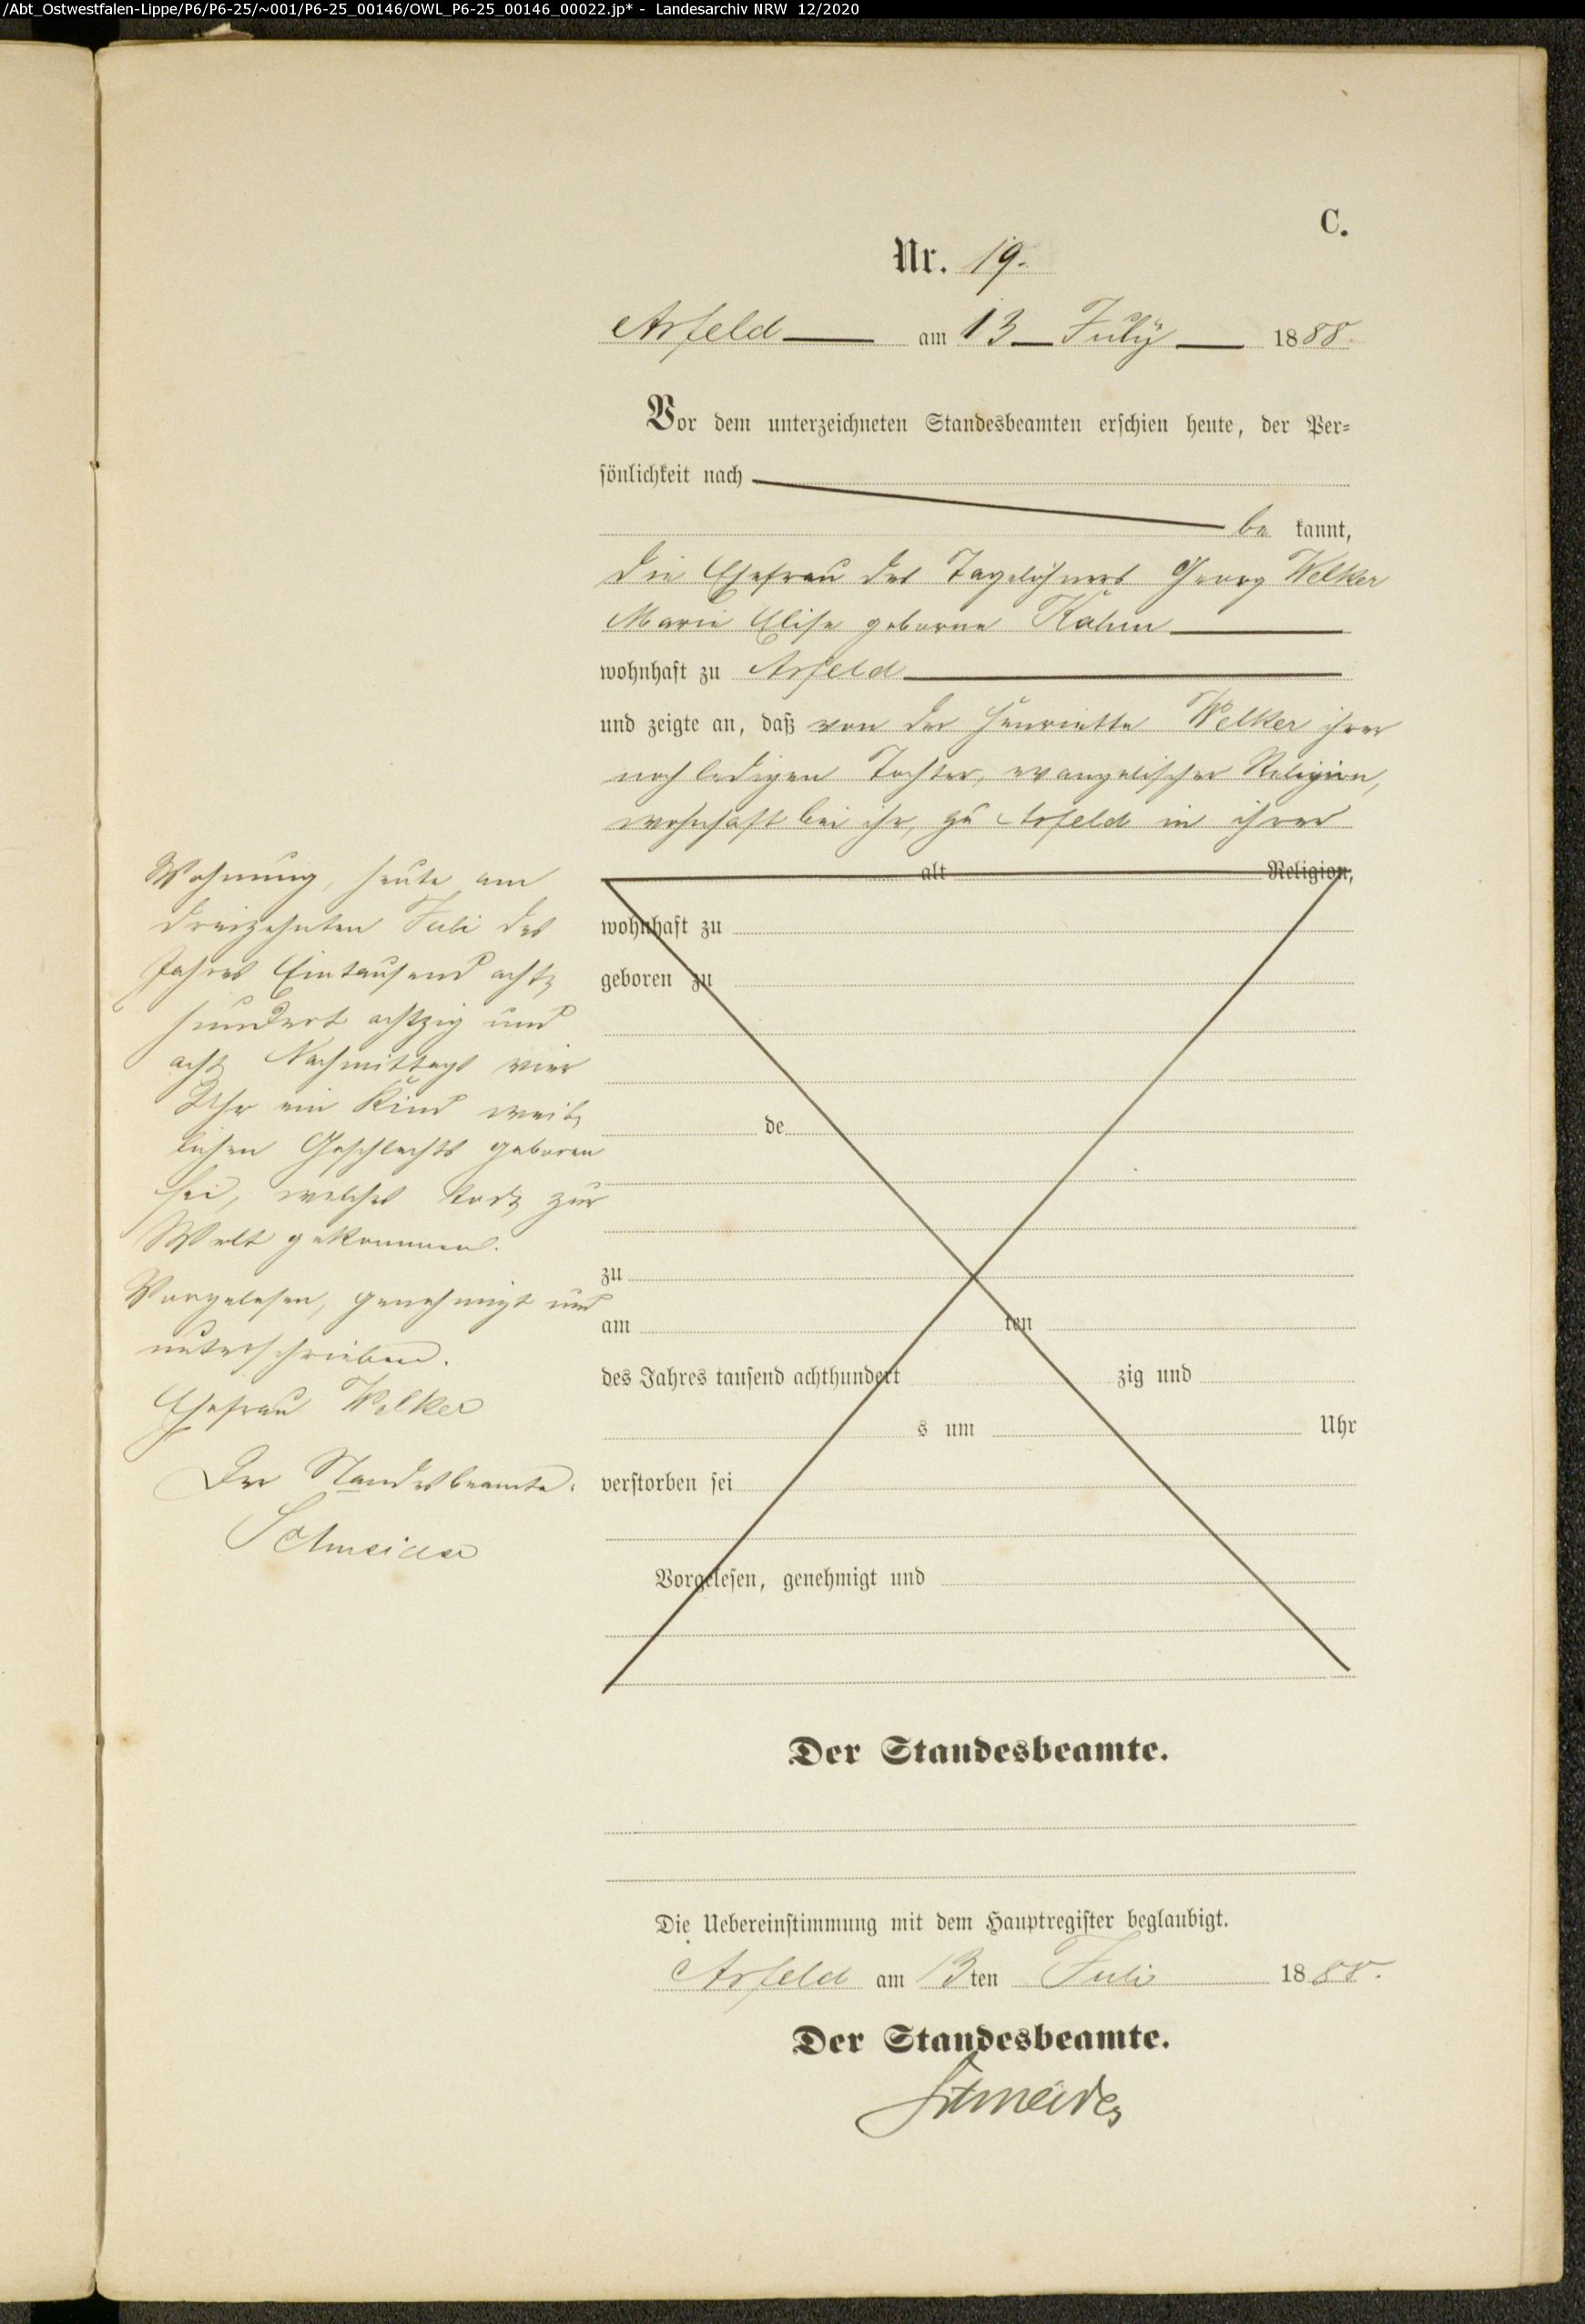 /Abt_Ostwestfalen-Lippe/P6/P6-25/~001/P6-25_00146/OWL_P6-25_00146_00022.jp* - Landesarchiv NRW 12/2020
C.
Nr. 19.
Arfeld am 13 July 1888.
Vor dem unterzeichneten Standesbeamten erschien heute, der Per=
sönlichkeit nach
be kannt,
die Ehefrau des Tagelöhners Georg Welker
Marie Elise geborne
wohnhaft zu Arfeld
und zeigte an, daß von der Henriette Welker ihrer
noch ledigen Tochter, evangelischer Religion,
wohnhaft bei ihr, zu Arfeld in ihrer
alt Religion,
wohnhaft zu
geboren zu
de
zu
am ten
des Jahres tausend achthundert zig und
s um Uhr
verstorben sei
Vorgelesen, genehmigt und
Wohnung, heute am
dreizehnten Juli des
Jahres Eintausend acht
hundert achtzig und
acht Nachmittags vier
Uhr ein Kind weib
lichen Geschlechts geboren
sei, welches todt zur
Welt gekommen.
Vorgelesen, genehmigt und
unterschrieben.
Ehefrau Welker
Der Standesbeamte.
Schneider
Der Standesbeamte.
Die Uebereinstimmung mit dem Hauptregister beglaubigt.
Arfeld am 13ten Juli 1888.
Der Standesbeamte.
Schneider